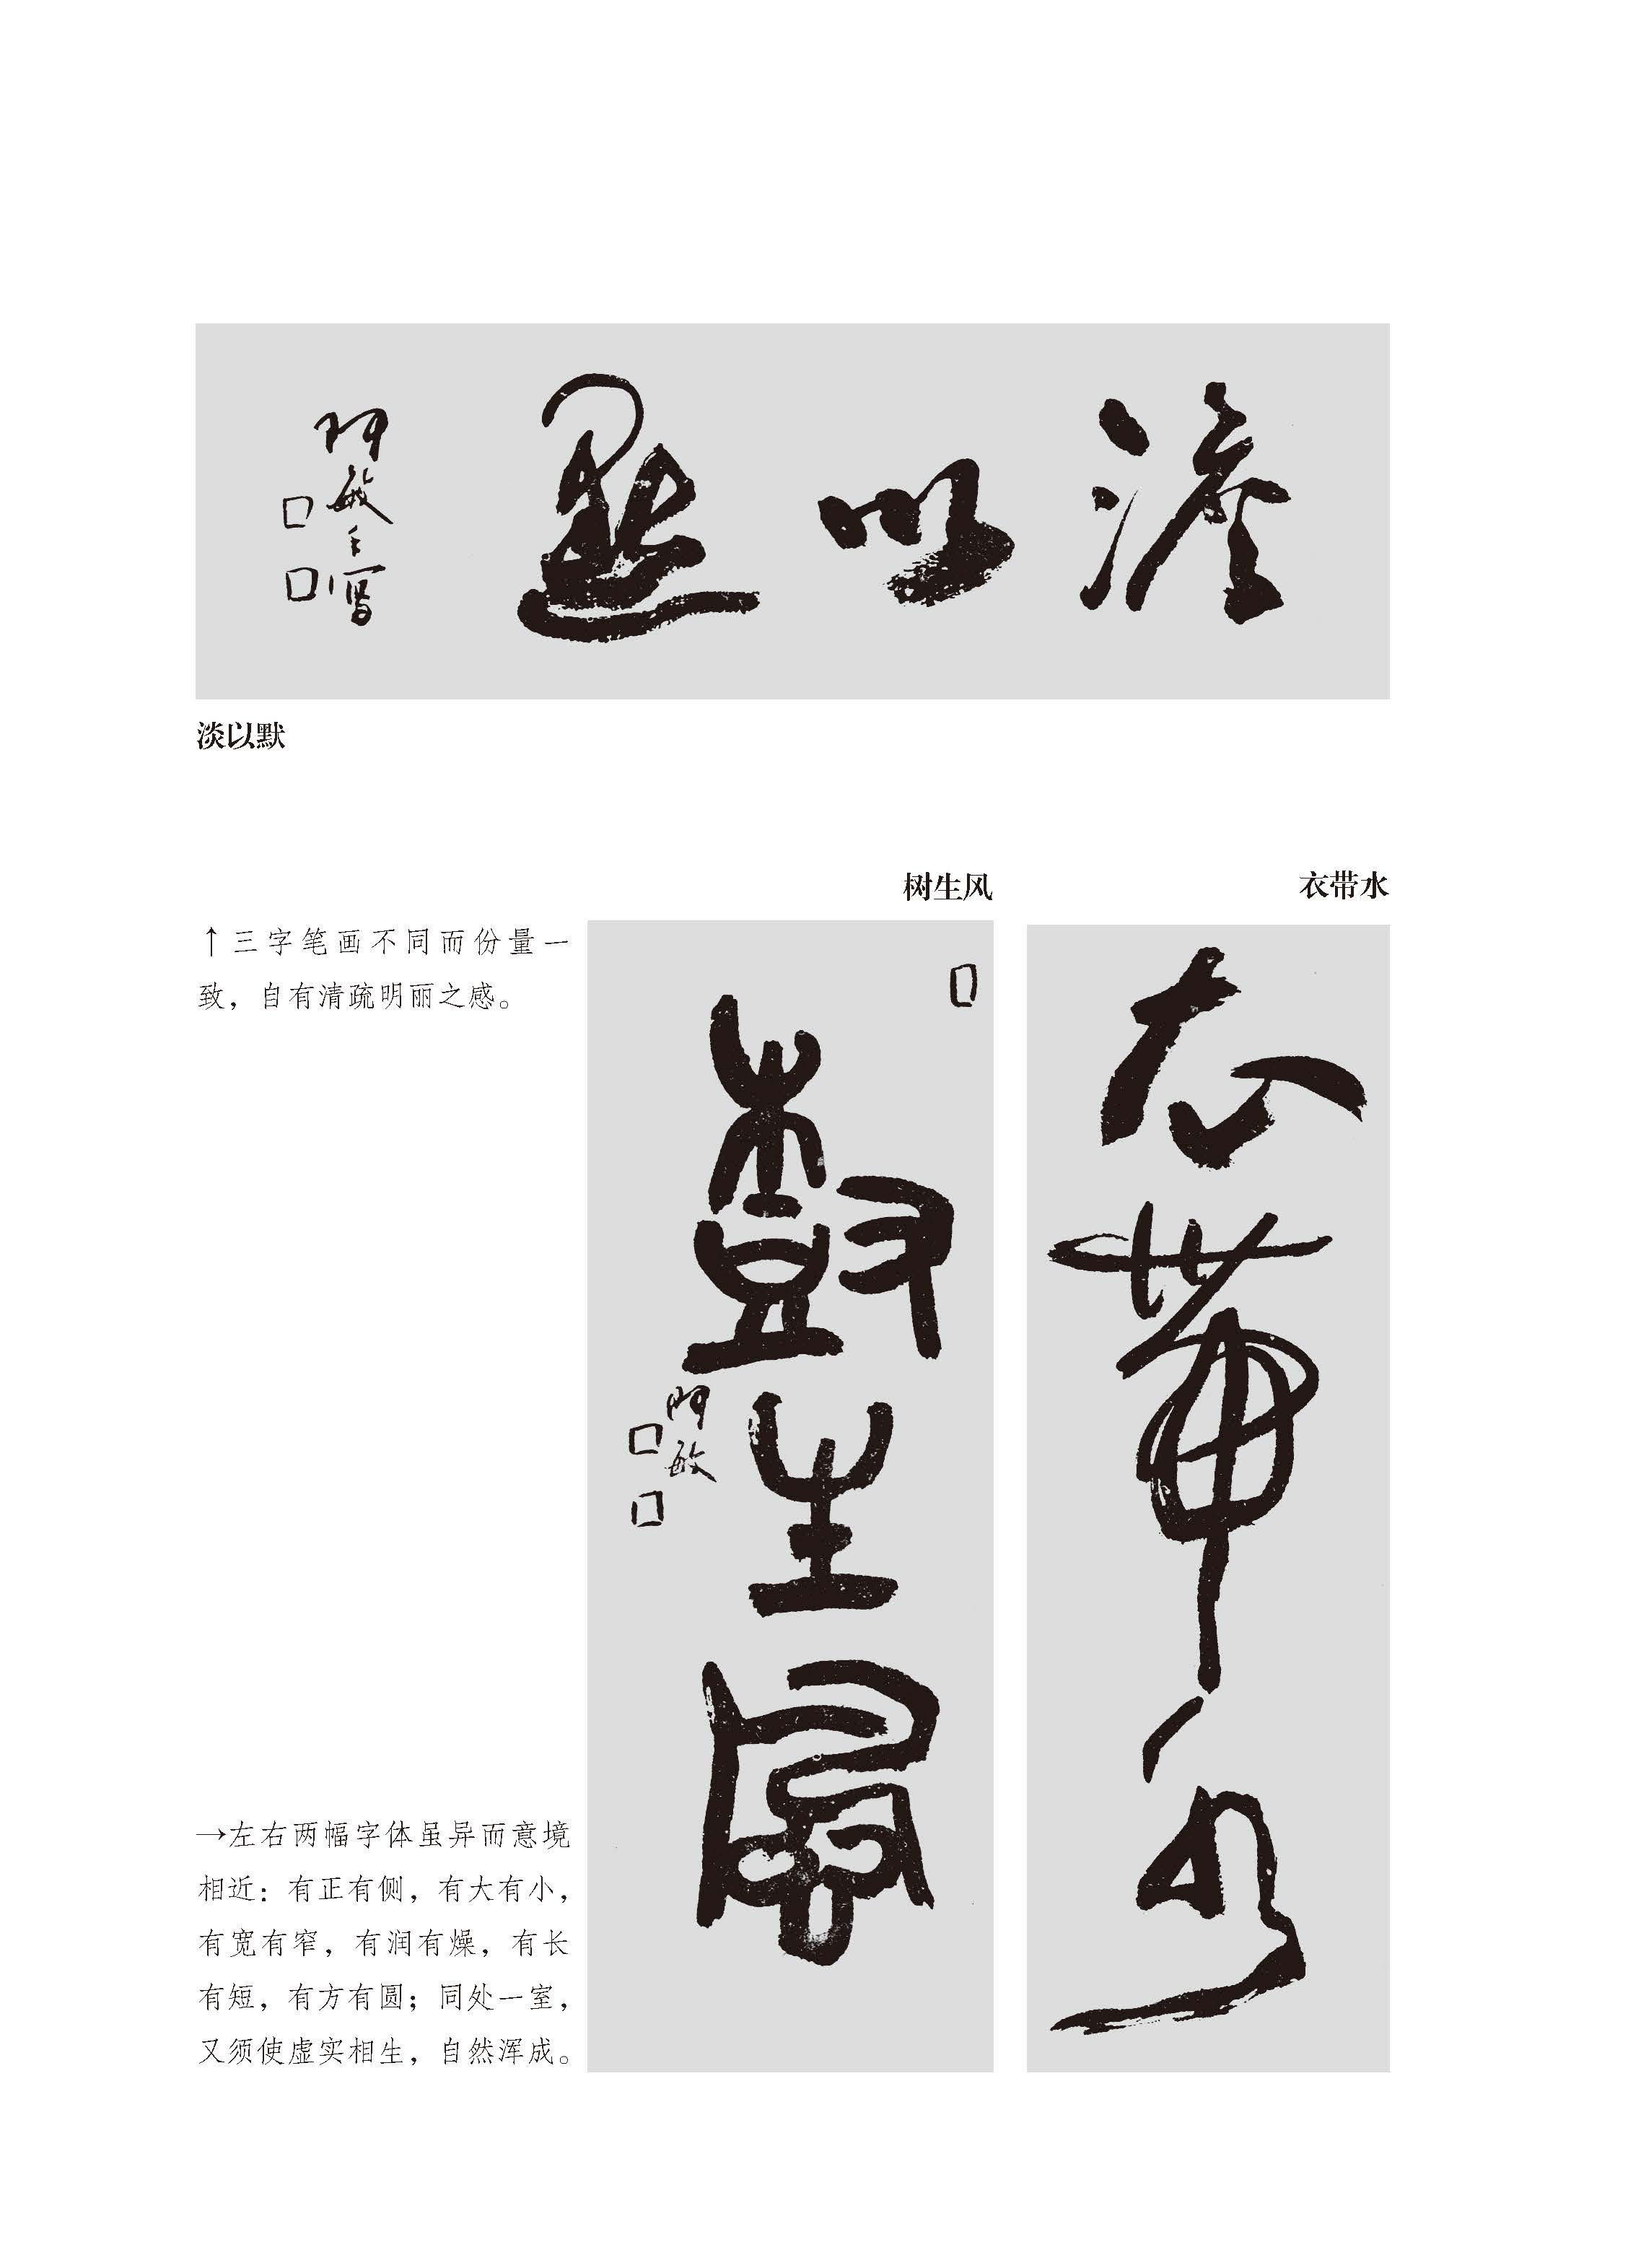 澹以默
阿敏手写
淡以默
↑三字笔画不同而份量一
致，自有清疏明丽之感。
树生风
衣带水
树生风
阿敏
衣带水
→左右两幅字体虽异而意境
相近：有正有侧，有大有小，
有宽有窄，有润有燥，有长
有短，有方有圆；同处一室，
又须使虚实相生，自然浑成。